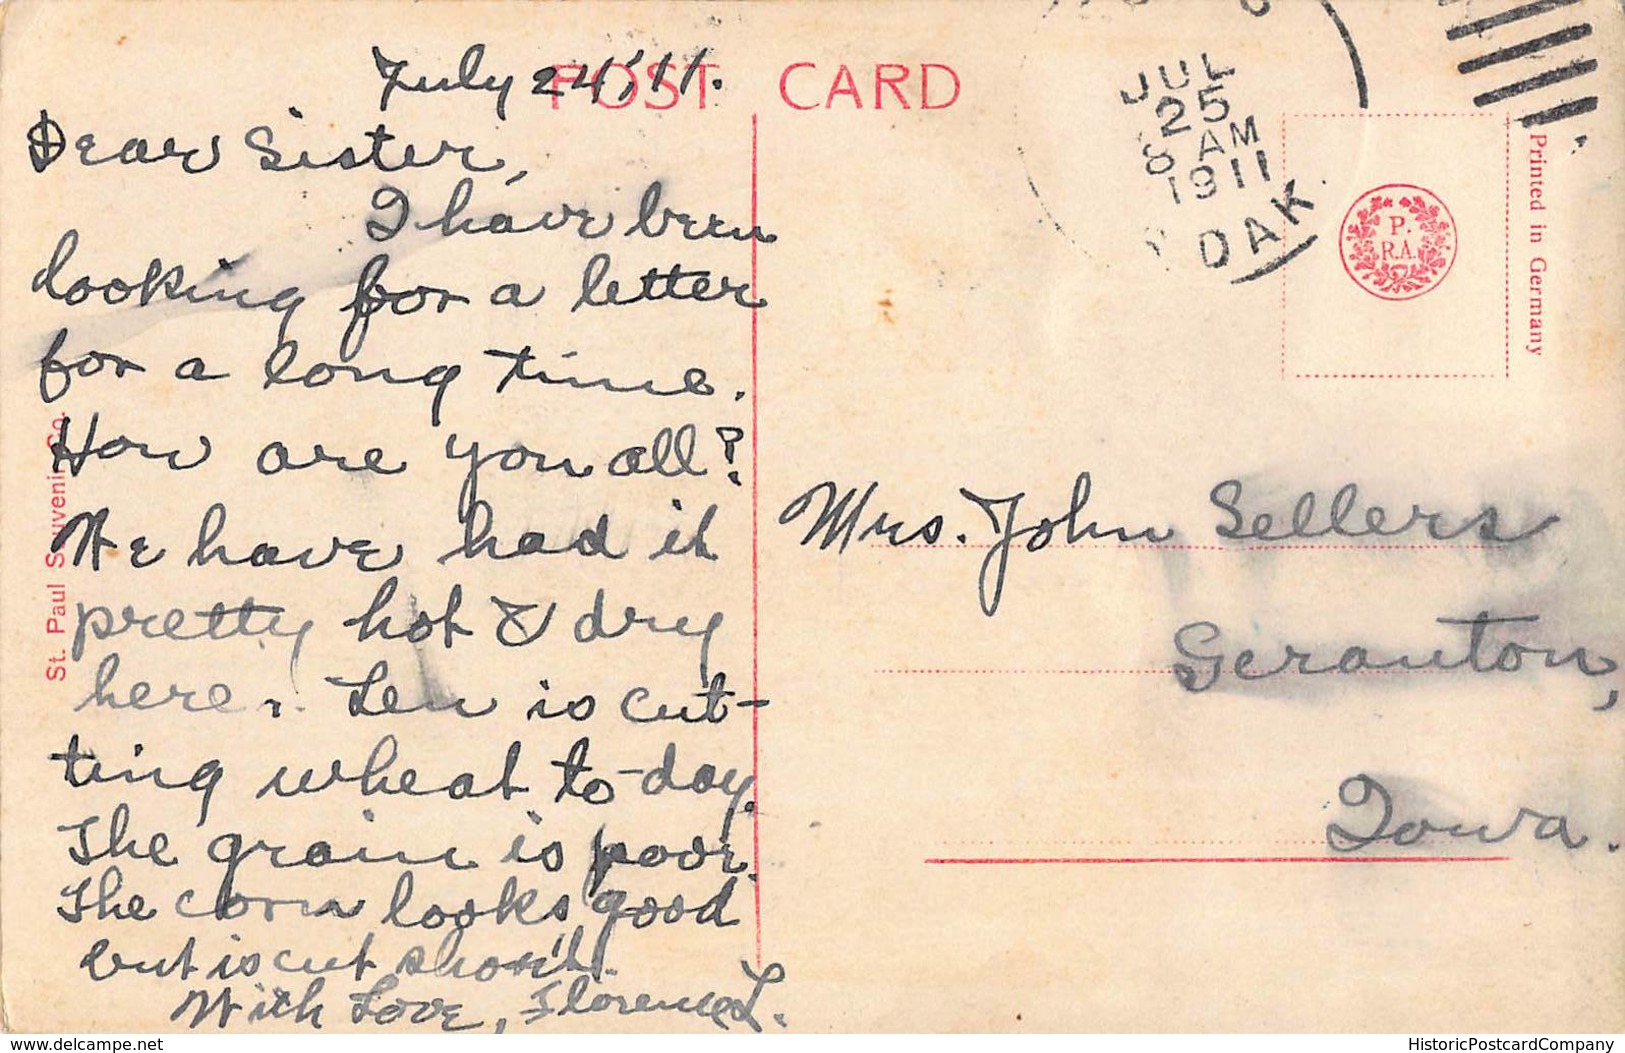 July 24, '11.
POST CARD
Dear Sister,
I have been
looking for a letter
for a long time.
How are you all?
We have had it
pretty hot & dry
here. Len is cut-
ting wheat to-day.
The grain is poor.
The corn looks good
but is cut short.
With Love, Florence L.
St. Paul Souvenir Co.
JUL
25
8 AM
1911
DAK.
P.
R.A.
Printed in Germany
Mrs. John Sellers
Geranton,
Iowa.
www.delcampe.net
HistoricPostcardCompany